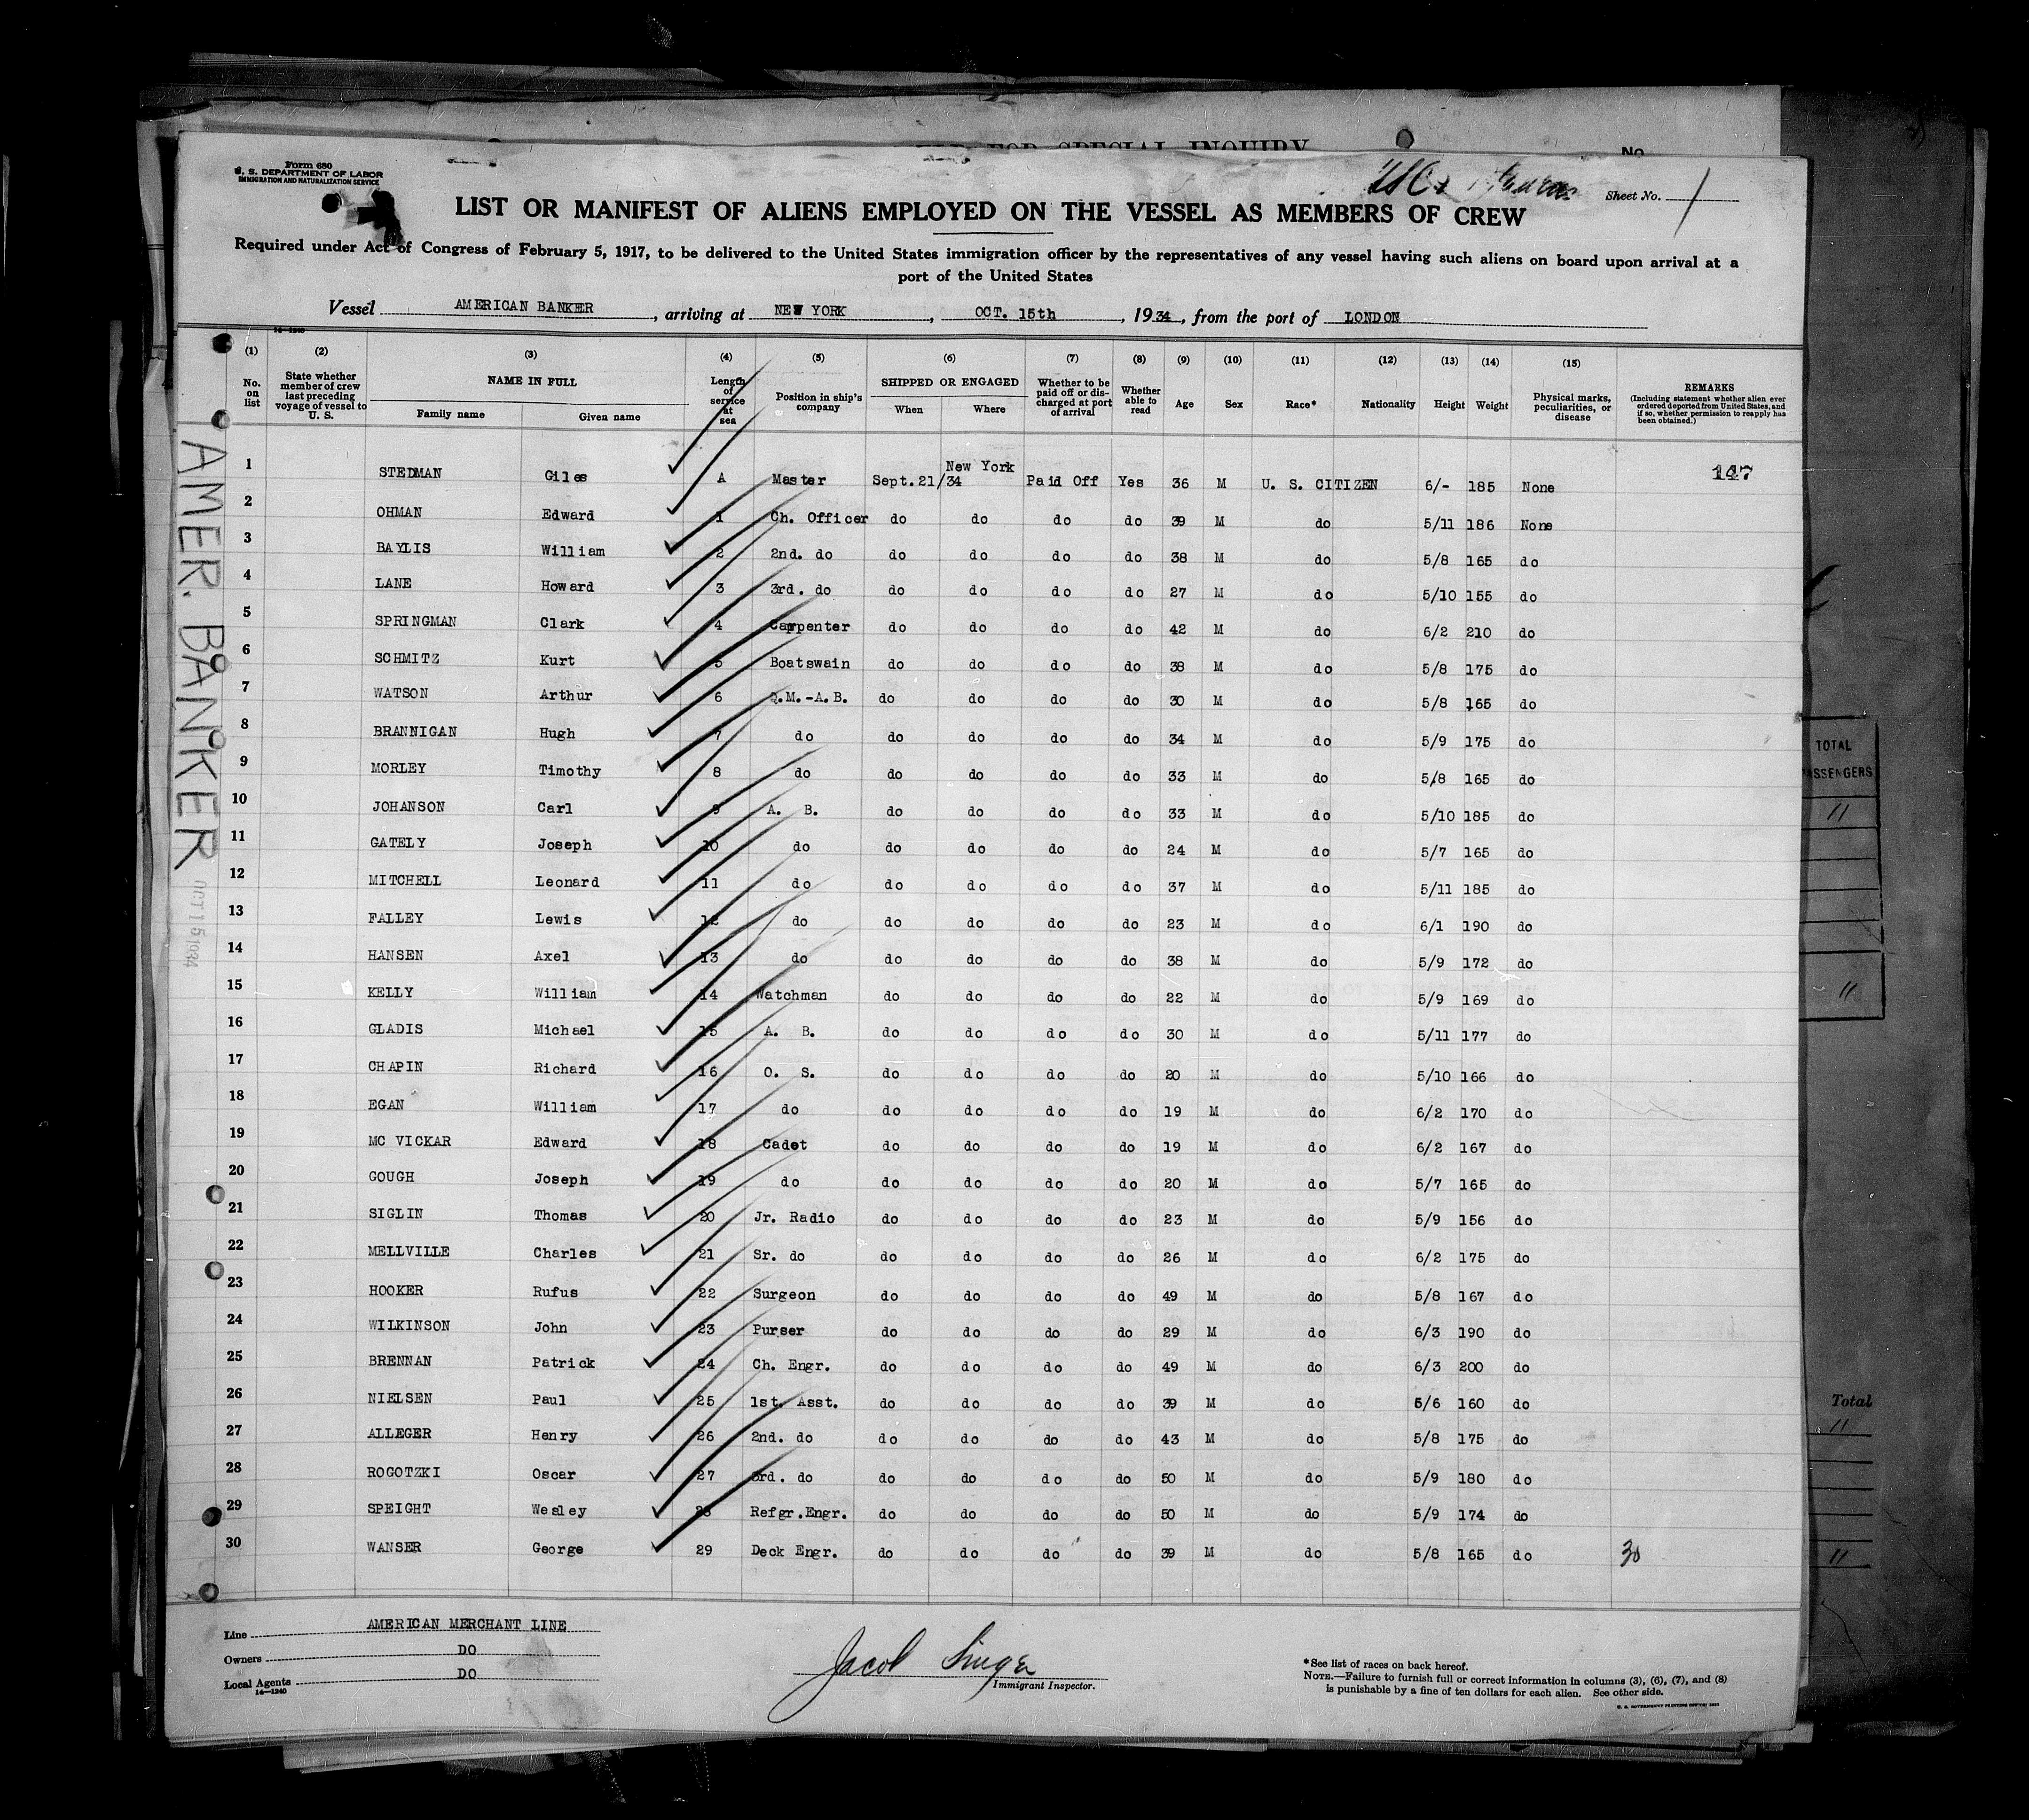 FOR SPECIAL INQUIRY
No.
Form 680
U. S. DEPARTMENT OF LABOR
IMMIGRATION AND NATURALIZATION SERVICE
Sheet No. 1
LIST OR MANIFEST OF ALIENS EMPLOYED ON THE VESSEL AS MEMBERS OF CREW
Required under Act of Congress of February 5, 1917, to be delivered to the United States immigration officer by the representatives of any vessel having such aliens on board upon arrival at a
port of the United States
Vessel AMERICAN BANKER, arriving at NEW YORK, OCT. 15th, 1934, from the port of LONDON
16-1240
(1) (2) (3) (4) (5) (6) (7) (8) (9) (10) (11) (12) (13) (14) (15)
No. on list State whether member of crew last preceding voyage of vessel to U. S. NAME IN FULL Family name Given name Length of service at sea Position in ship's company SHIPPED OR ENGAGED When Where Whether to be paid off or discharged at port of arrival Whether able to read Age Sex Race* Nationality Height Weight Physical marks, peculiarities, or disease REMARKS (Including statement whether alien ever ordered deported from United States, and if so, whether permission to reapply has been obtained.)
1 STEDMAN Giles A Master Sept.21/34 New York Paid Off Yes 36 M U. S. CITIZEN 6/- 185 None 147
2 OHMAN Edward 1 Ch. Officer do do do do 39 M do 5/11 186 None
3 BAYLIS William 2 2nd. do do do do do 38 M do 5/8 165 do
4 LANE Howard 3 3rd. do do do do do 27 M do 5/10 155 do
5 SPRINGMAN Clark 4 Carpenter do do do do 42 M do 6/2 210 do
6 SCHMITZ Kurt 5 Boatswain do do do do 38 M do 5/8 175 do
7 WATSON Arthur 6 Q.M.-A.B. do do do do 30 M do 5/8 165 do
8 BRANNIGAN Hugh 7 do do do do do 34 M do 5/9 175 do
9 MORLEY Timothy 8 do do do do do 33 M do 5/8 165 do
10 JOHANSON Carl 9 A. B. do do do do 33 M do 5/10 185 do
11 GATELY Joseph 10 do do do do do 24 M do 5/7 165 do
12 MITCHELL Leonard 11 do do do do do 37 M do 5/11 185 do
13 FALLEY Lewis 12 do do do do do 23 M do 6/1 190 do
14 HANSEN Axel 13 do do do do do 38 M do 5/9 172 do
15 KELLY William 14 Watchman do do do do 22 M do 5/9 169 do
16 GLADIS Michael 15 A. B. do do do do 30 M do 5/11 177 do
17 CHAPIN Richard 16 O. S. do do do do 20 M do 5/10 166 do
18 EGAN William 17 do do do do do 19 M do 6/2 170 do
19 MC VICKAR Edward 18 Cadet do do do do 19 M do 6/2 167 do
20 GOUGH Joseph 19 do do do do do 20 M do 5/7 165 do
21 SIGLIN Thomas 20 Jr. Radio do do do do 23 M do 5/9 156 do
22 MELLVILLE Charles 21 Sr. do do do do do 26 M do 6/2 175 do
23 HOOKER Rufus 22 Surgeon do do do do 49 M do 5/8 167 do
24 WILKINSON John 23 Purser do do do do 29 M do 6/3 190 do
25 BRENNAN Patrick 24 Ch. Engr. do do do do 49 M do 6/3 200 do
26 NIELSEN Paul 25 1st. Asst. do do do do 39 M do 5/6 160 do
27 ALLEGER Henry 26 2nd. do do do do do 43 M do 5/8 175 do
28 ROGOTZKI Oscar 27 3rd. do do do do do 50 M do 5/9 180 do
29 SPEIGHT Wesley 28 Refgr.Engr. do do do do 50 M do 5/9 174 do
30 WANSER George 29 Deck Engr. do do do do 39 M do 5/8 165 do 30
AMER. BANKER
OCT 15 1934
TOTAL
PASSENGERS
11
11
Total
11
11
Line AMERICAN MERCHANT LINE
Owners DO
Local Agents DO
16-1240
Jacob Singer
Immigrant Inspector.
*See list of races on back hereof.
NOTE.—Failure to furnish full or correct information in columns (3), (6), (7), and (8)
is punishable by a fine of ten dollars for each alien. See other side.